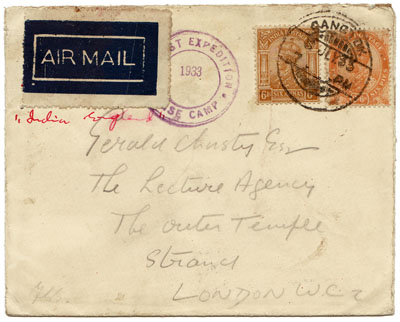 AIR MAIL
ST EXPEDITION
1933
SE CAMP
GANGTOK
6 As
"India England"
Gerald Christy Esq
The Lecture Agency
The outer Temple
Strand
LONDON W.C.2